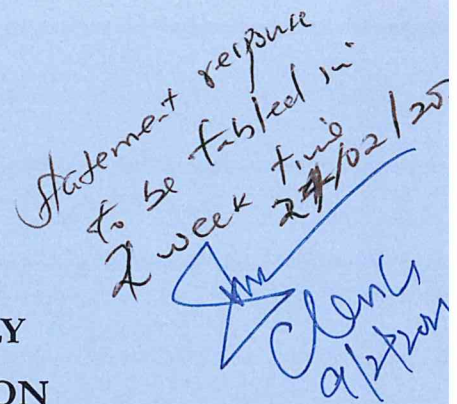 statement response
to be tabled in
2 week time
02/20
LY
ON
Clerk
9/2/202